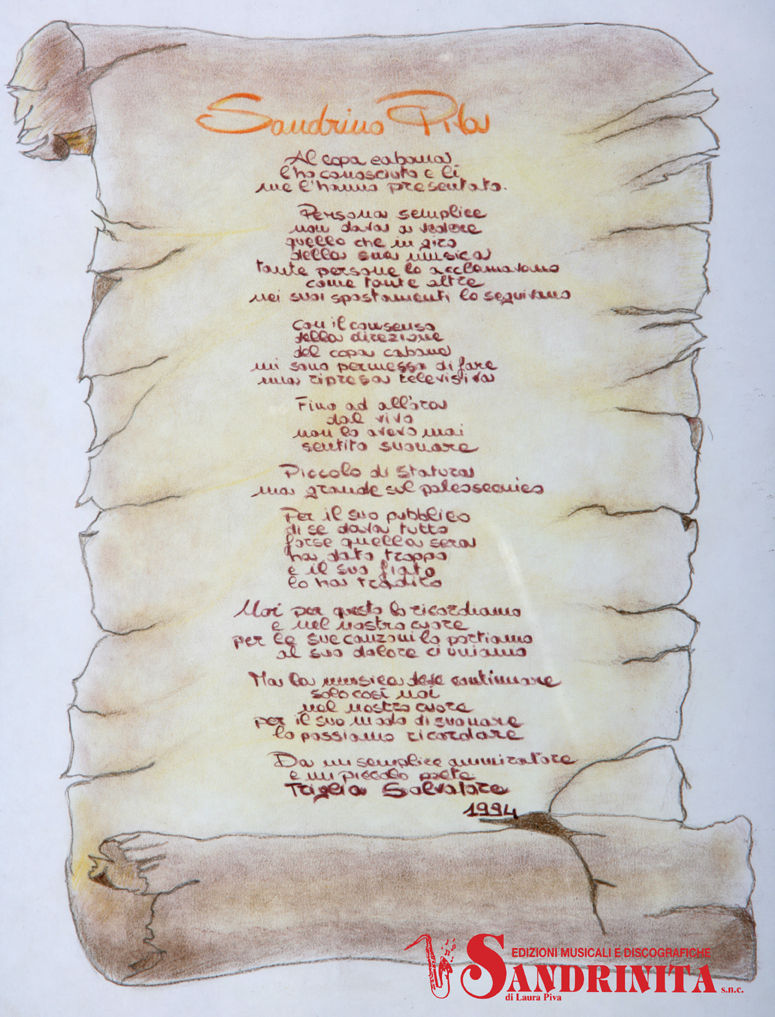 Sandrino Piva
Al copa cabana
l'ho conosciuto e li
me l'hanno presentato.
Persona semplice
non dava a vedere
quello che in giro
della sua musica
tante persone lo acclamavano
come tante altre
nei suoi spostamenti lo seguivano
Con il consenso
della direzione
del copa cabana
mi sono permesso di fare
una ripresa televisiva
Fino ad all'ora
dal vivo
non lo avevo mai
sentito suonare
Piccolo di statura
ma grande sul palcoscenico
Per il suo pubblico
di se dava tutto
forse quella sera
ha dato troppo
e il suo fiato
lo ha tradito
Noi per questo lo ricordiamo
e nel nostro cuore
per le sue canzoni lo portiamo
al suo dolore ci uniamo
Ma la musica deve continuare
solo così noi
nel nostro cuore
per il suo modo di suonare
lo possiamo ricordare
Da un semplice ammiratore
e un piccolo poeta
Triglia Salvatore
1994
EDIZIONI MUSICALI E DISCOGRAFICHE
SANDRINITA s.n.c.
di Laura Piva